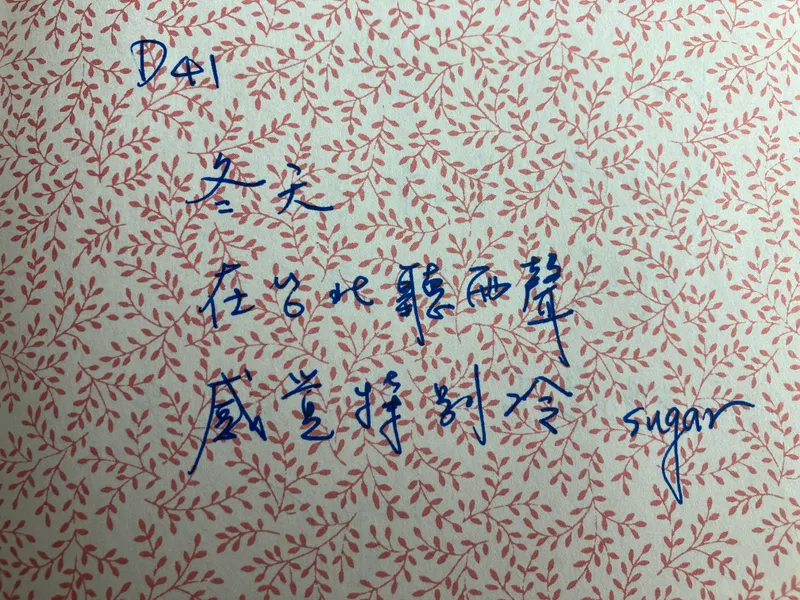 D41
冬天
在台北聽雨聲
感覚特別冷 sugar